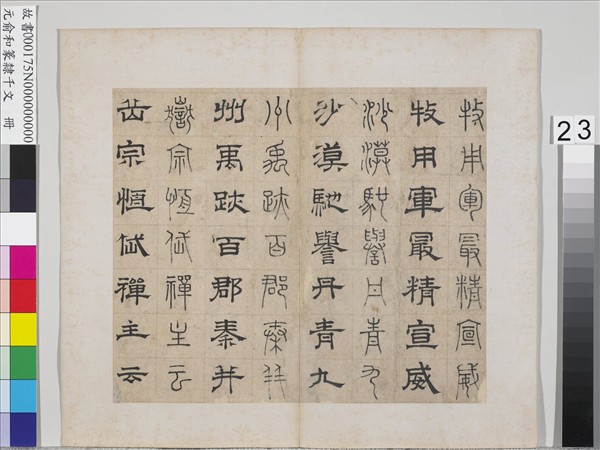 牧用軍最精宣威
牧用軍最精宣威
沙漠馳譽丹青九
沙漠馳譽丹青九
州禹跡百郡秦并
州禹跡百郡秦并
嶽宗恒岱禪主云
岳宗恒岱禪主云
故書000175N000000000
元俞和篆隸千文 冊
23